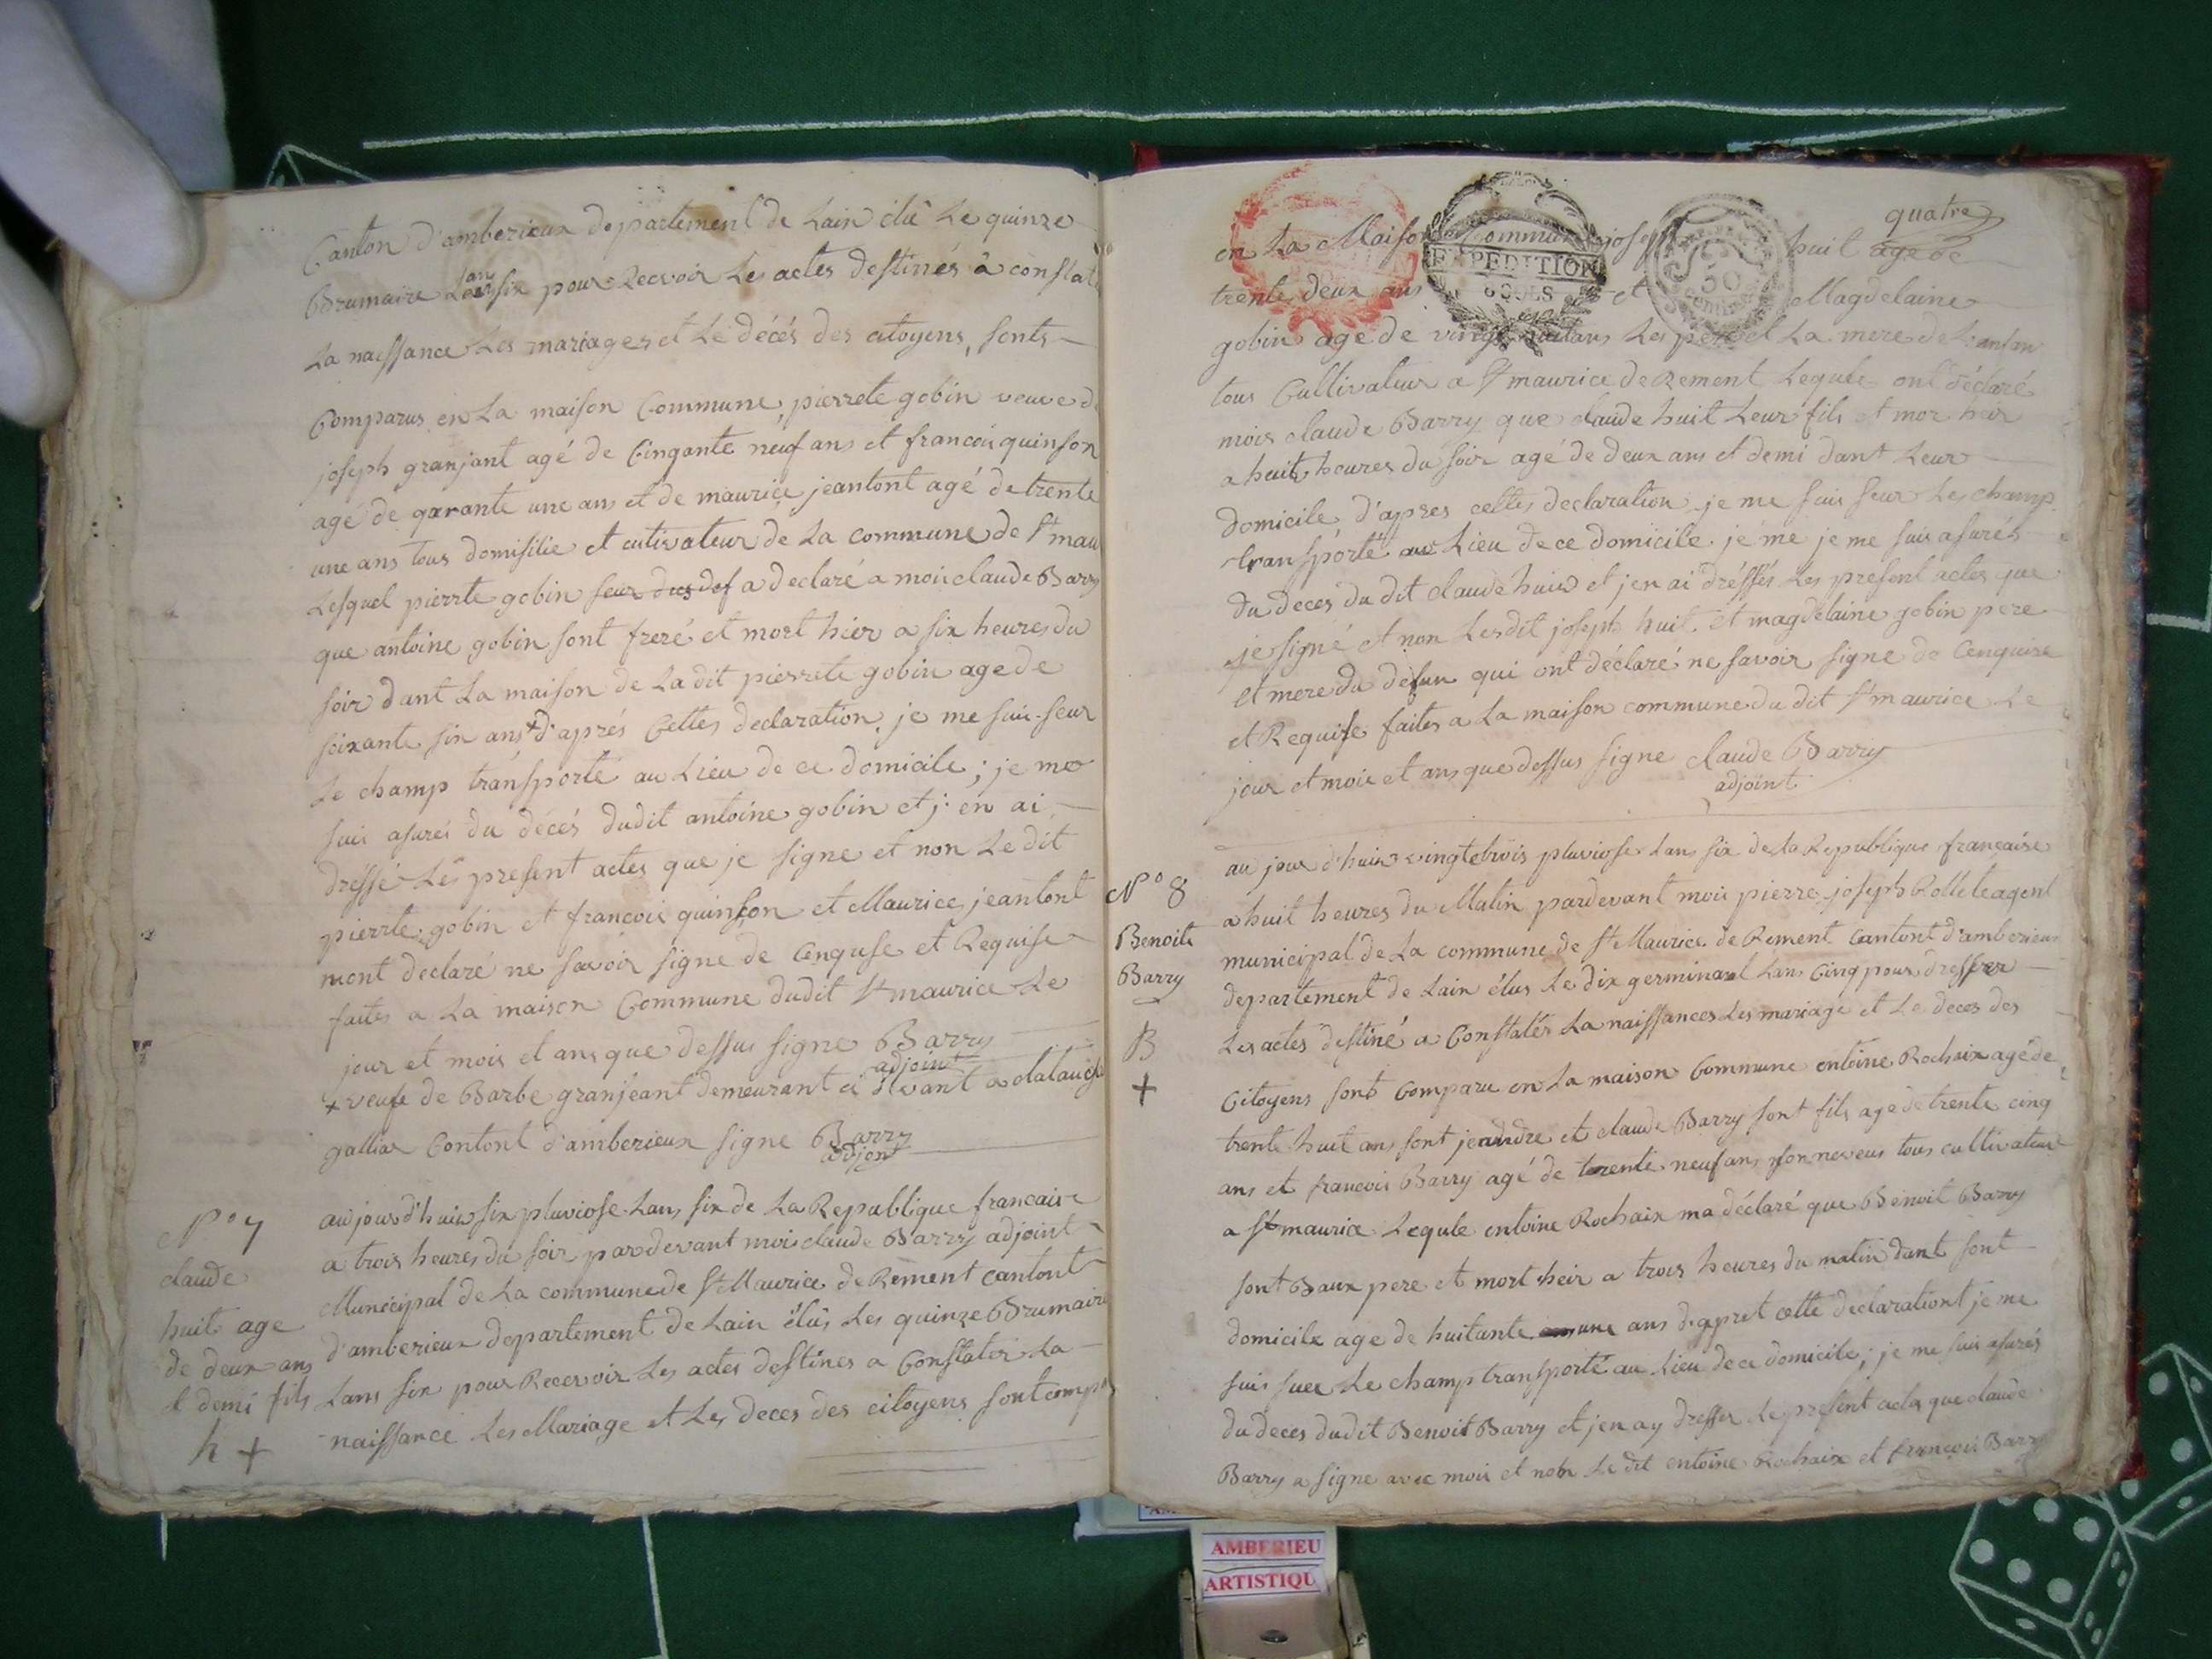 Canton d'amberieux departement de Lain élu Le quinze
Brumaire Lan six pour Recevoir Les actes destinés à constat
La naissance Les mariages et Le décés des citoyens, sonts
Comparus en La maison Commune, pierrete gobin veuve d
joseph granjant agé de Cinqante neuf ans et francois quinson
agé de qarante une ans et de maurice jeantont agé de trente
une ans tous domisilie et cutivateur de La commune de St mau
Lesquel pierrte gobin a declaré a moi claude Barry
que antoine gobin sont freré et mort hier a six heures du
soir dant La maison de La dit pierrete gobin age de
soixante six ans + d'aprés Cettes declaration, je me suis seur
Le champ transporté au Lieu de ce domicile; je me
suis asurés du décés dudit antoine gobin et j'en ai
dressé Les present actes que je signe et non Le dit
pierrte gobin et francois quinson et Maurice jeantont
mont declaré ne savoir signe de Cenquse et Requise
faites a La maison Commune dudit St maurice Le
jour et mois et ans que dessus signe Barry
adjoint
+ veufe de Barbe granjeant demeurant ci devant a
gallia Contont d'amberieux signe Barry
adjont
N° 7
claude
huit age
de deux ans
et demi fils
h +
aujourd'huis six pluviose Lans six de La Republique francaise
a trois heures du soir pardevant mois claude Barry adjoint
Municipal de La commune de St Maurice de Rement cantont
d'amberieux departement de Lain élûs Les quinze Brumaire
Lans six pour Recervoir Les actes destines a Constater La
naissance Les Mariage et Les deces des citoyens sont comp
quatre
en La Maison Commune joseph huit age de
EXPEDITION
50
trente deux ans et Magdelaine
gobin age de vingt huit ans Les pere et La mere de L'anfan
tous Cultivateur a St maurice de Rement Lequle ont déclaré
mois claude Barry que claude huit Leur fils et mor heir
a huits heures du soir agé de deux ans et demi dant Leur
domicile, d'apres cettes declaration je me suis seur Les champ
transporté au Lieu de ce domicile je me je me suis asurés
du deces du dit claude huis et jen ai dréssés Les present actes que
je signé et non Lesdit joseph huit et magdelaine gobin pere
et mere du défun qui ont déclaré ne savoir signe de Cenquire
et Requise faites a La maison commune du dit St maurice Le
jour et mois et ans que dessus signe claude Barry
adjoint
N° 8
Benoite
Barry
B
+
au jour d'huis vingtetrois pluviose Lans six de La Republique francaise
a huit heures du Matin pardevant mois pierre joseph agent
municipal de La commune de St Maurice de Rement Cantont d'amberieux
departement de Lain élus Le dix germinal Lans Cinq pour dresser
Les actes destiné a Constatér La naissances Les mariage et Le deces des
Citoyens sont Comparu en La maison Commune entoine Rochaix agé de
trente huit ans sont jeandre et claude Barry sont fils age de trente cinq
ans et francois Barry agé de trente neuf ans son neveus tous cultivateur
a St maurice Lequle entoine Rochaix ma déclaré que Benoit Barry
sont Baux pere et mort heir a trois heures du matin dant sont
domicile age de huitante une ans d'apret cette declarationt je me
suis suer Le champ transporté au Lieu de ce domicile; je me suis asurés
du deces dudit Benoit Barry et jen ay dresser Le present actes que claude
Barry a signe avec mois et non Le dit entoine Rochaix et francois Barry
AMBERIEU
ARTISTIQU